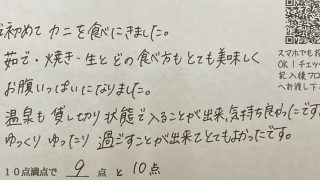 初めて カニを食べにきました。
茹で・焼き・生とどの食べ方もとても美味しく
お腹いっぱいになりました。
温泉も貸し切り状態で入ることが出来、気持ち良かったです
ゆっくり ゆったり 過ごすことが出来てとてもよかったです。
10点満点で 9 点 と 10点
スマホでも
OK！チェッ
記入後フロ
へお渡し下